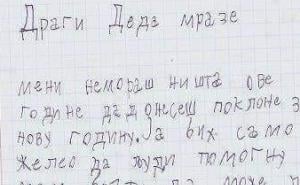 Драги Деда мразе
мени немораш ништа ове
године да донсеш поклоне з
нову годину. Ја бих само
желео да људи помогну